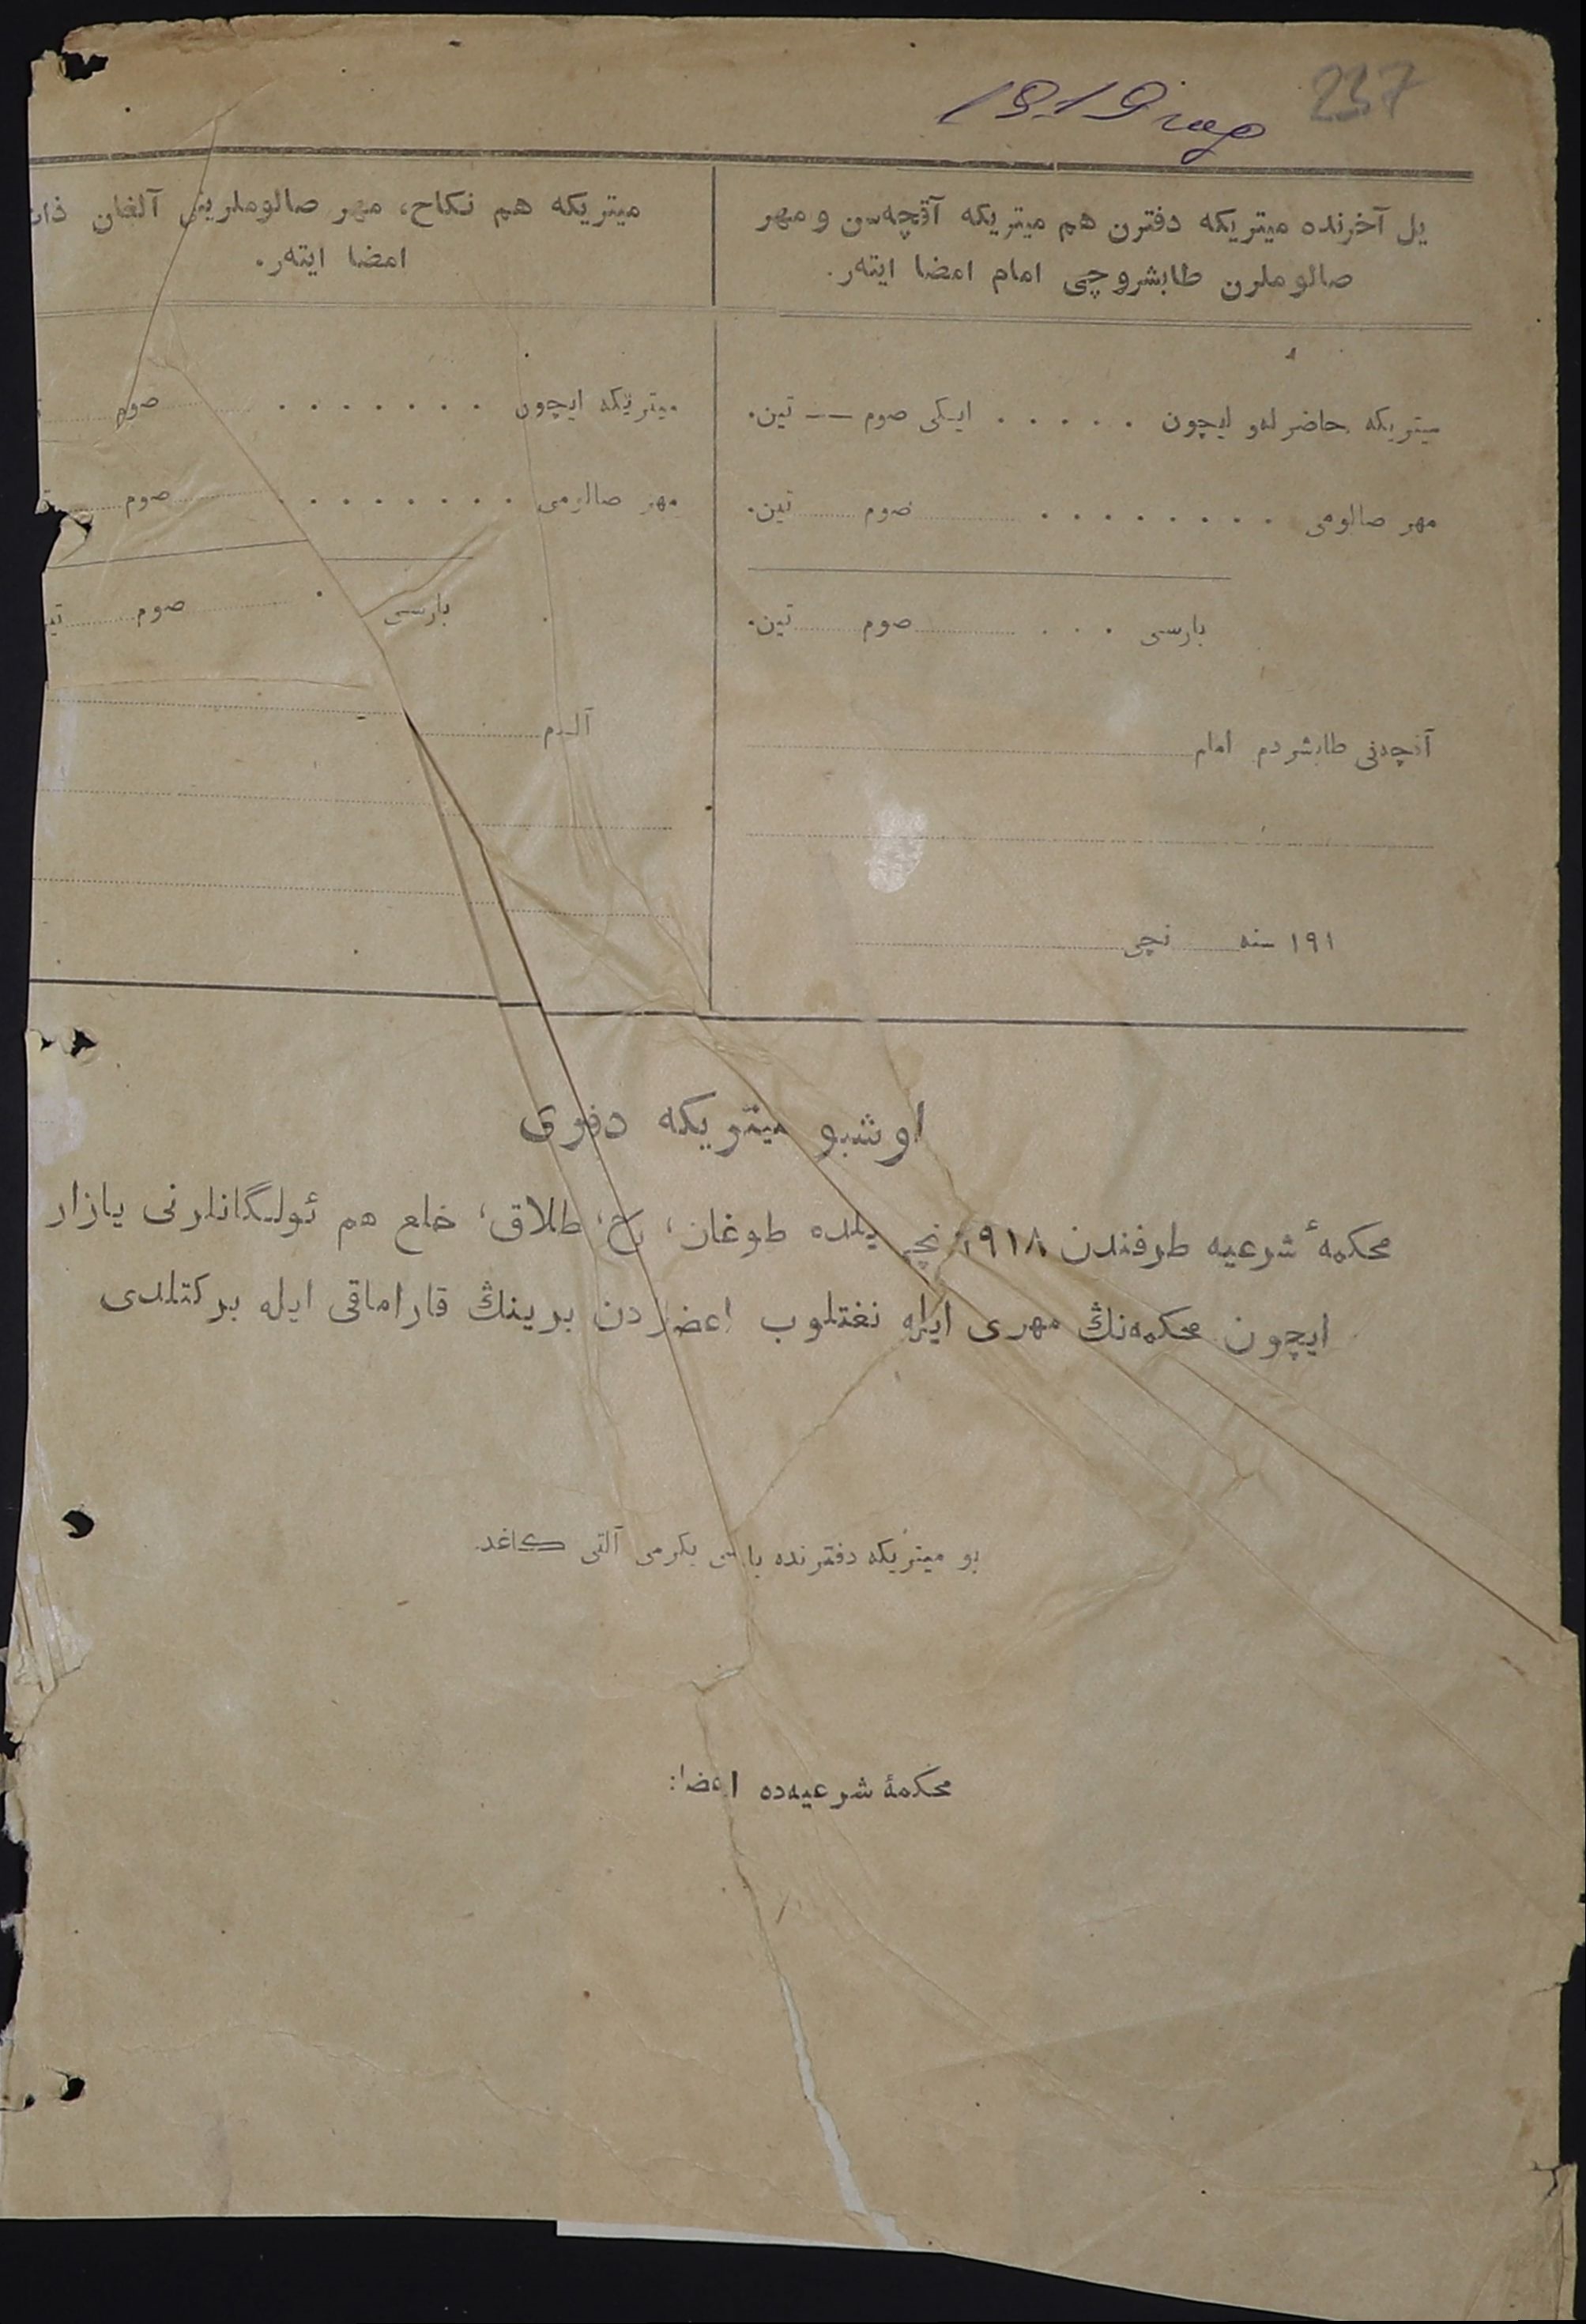 1919 год 237
يل آخرنده ميتريكه دفترن هم ميتريكه آقچه‌سن و مهر
صالوملرن طابشروچی امام امضا ايته‌ر.
ميتريكه حاضرله‌و ايچون . . . . . ايكی صوم — — تين.
مهر صالومی . . . . . . . . صوم تين.
بارسی . . . صوم تين.
آقچه‌نی طابشردم امام
۱۹۱ سنه نچی
ميتريكه هم نكاح، مهر صالوملرينی آلغان ذات
امضا ايته‌ر.
ميتريكه ايچون . . . . . . . صوم
مهر صالومی . . . . . . . . صوم
بارسی . صوم
آلدم
اوشبو ميتريكه دفتری
محكمهٔ شرعيه طرفندن ۱۹۱۸ نچی يلده طوغان، طلاق، خلع هم ئولگانلرنی يازار
ايچون محكمه‌نڭ مهری ايله نغتلوب اعضادن برينڭ قاراماقی ايله بركتلدی
بو ميتريكه دفترنده يكرمی آلتی كاغد.
محكمهٔ شرعيه‌ده اعضا: